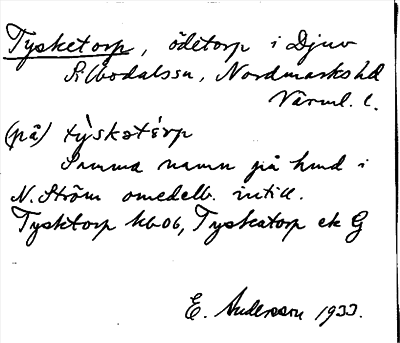 Tysketorp, ödetorp i Djuv
S. Modalssn, Nordmarks hd
Värml. l.
(på) tỳskətórp
Samma namn på hmd i
N. Ström omedelb. intill.
Tysktorp kb 06, Tyskatorp ek G
E. Andersson 1933.